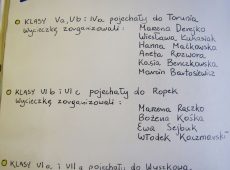 KLASY Va, Vb i IVa pojechały do Torunia
Wycieczkę zorganizowali: Marena Derejko
Wiesława Kunasiak
Hanna Maćkowska
Aneta Rozwora
Kasia Benczkowska
Marcin Bartosiewicz
KLASY VIb i VIc pojechały do Ropek
Wycieczkę zorganizowali: Marzena Raczko
Bożena Kośka
Ewa Sejbuk
Włodek "Kaczmarski"
KLASY VIa i VIIa pojechały do Wyszkowa